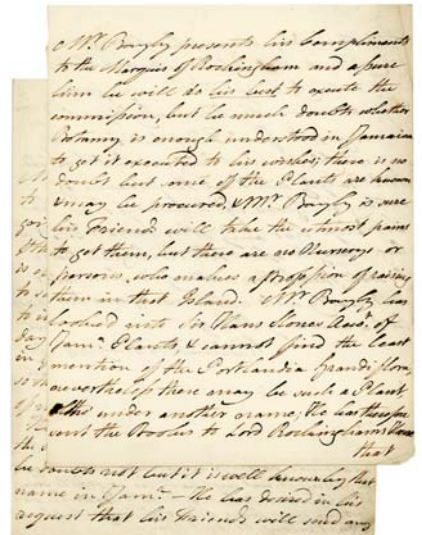 Mr. Bayly presents his Compliments
to the Marquis of Rockingham and assure
him he will do his best to execute the
commission, but he much doubts whether
Botamy is enough understood in Jamaica
to get it executed to his wishes; there is no
doubt but some of the Plants are known
& may be procured, & Mr. Bayly is sure
his Friends will take the utmost pains
to get them, but there are no Nurserys or
persons, who makes a Profession of raising
them in that Island. Mr Bayly has
looked into Sir Hans Slones Acct. of
Jama. Plants, & cannot find the least
mention of the Portlandia Grandiflora,
nevertheless there may be such a Plant,
tho under another name; He has therefore
sent the Books to Lord Rockinghams House
that
he doubts not but it is well known by that
name in Jama. — He has desired in his
request that his Friends will send any